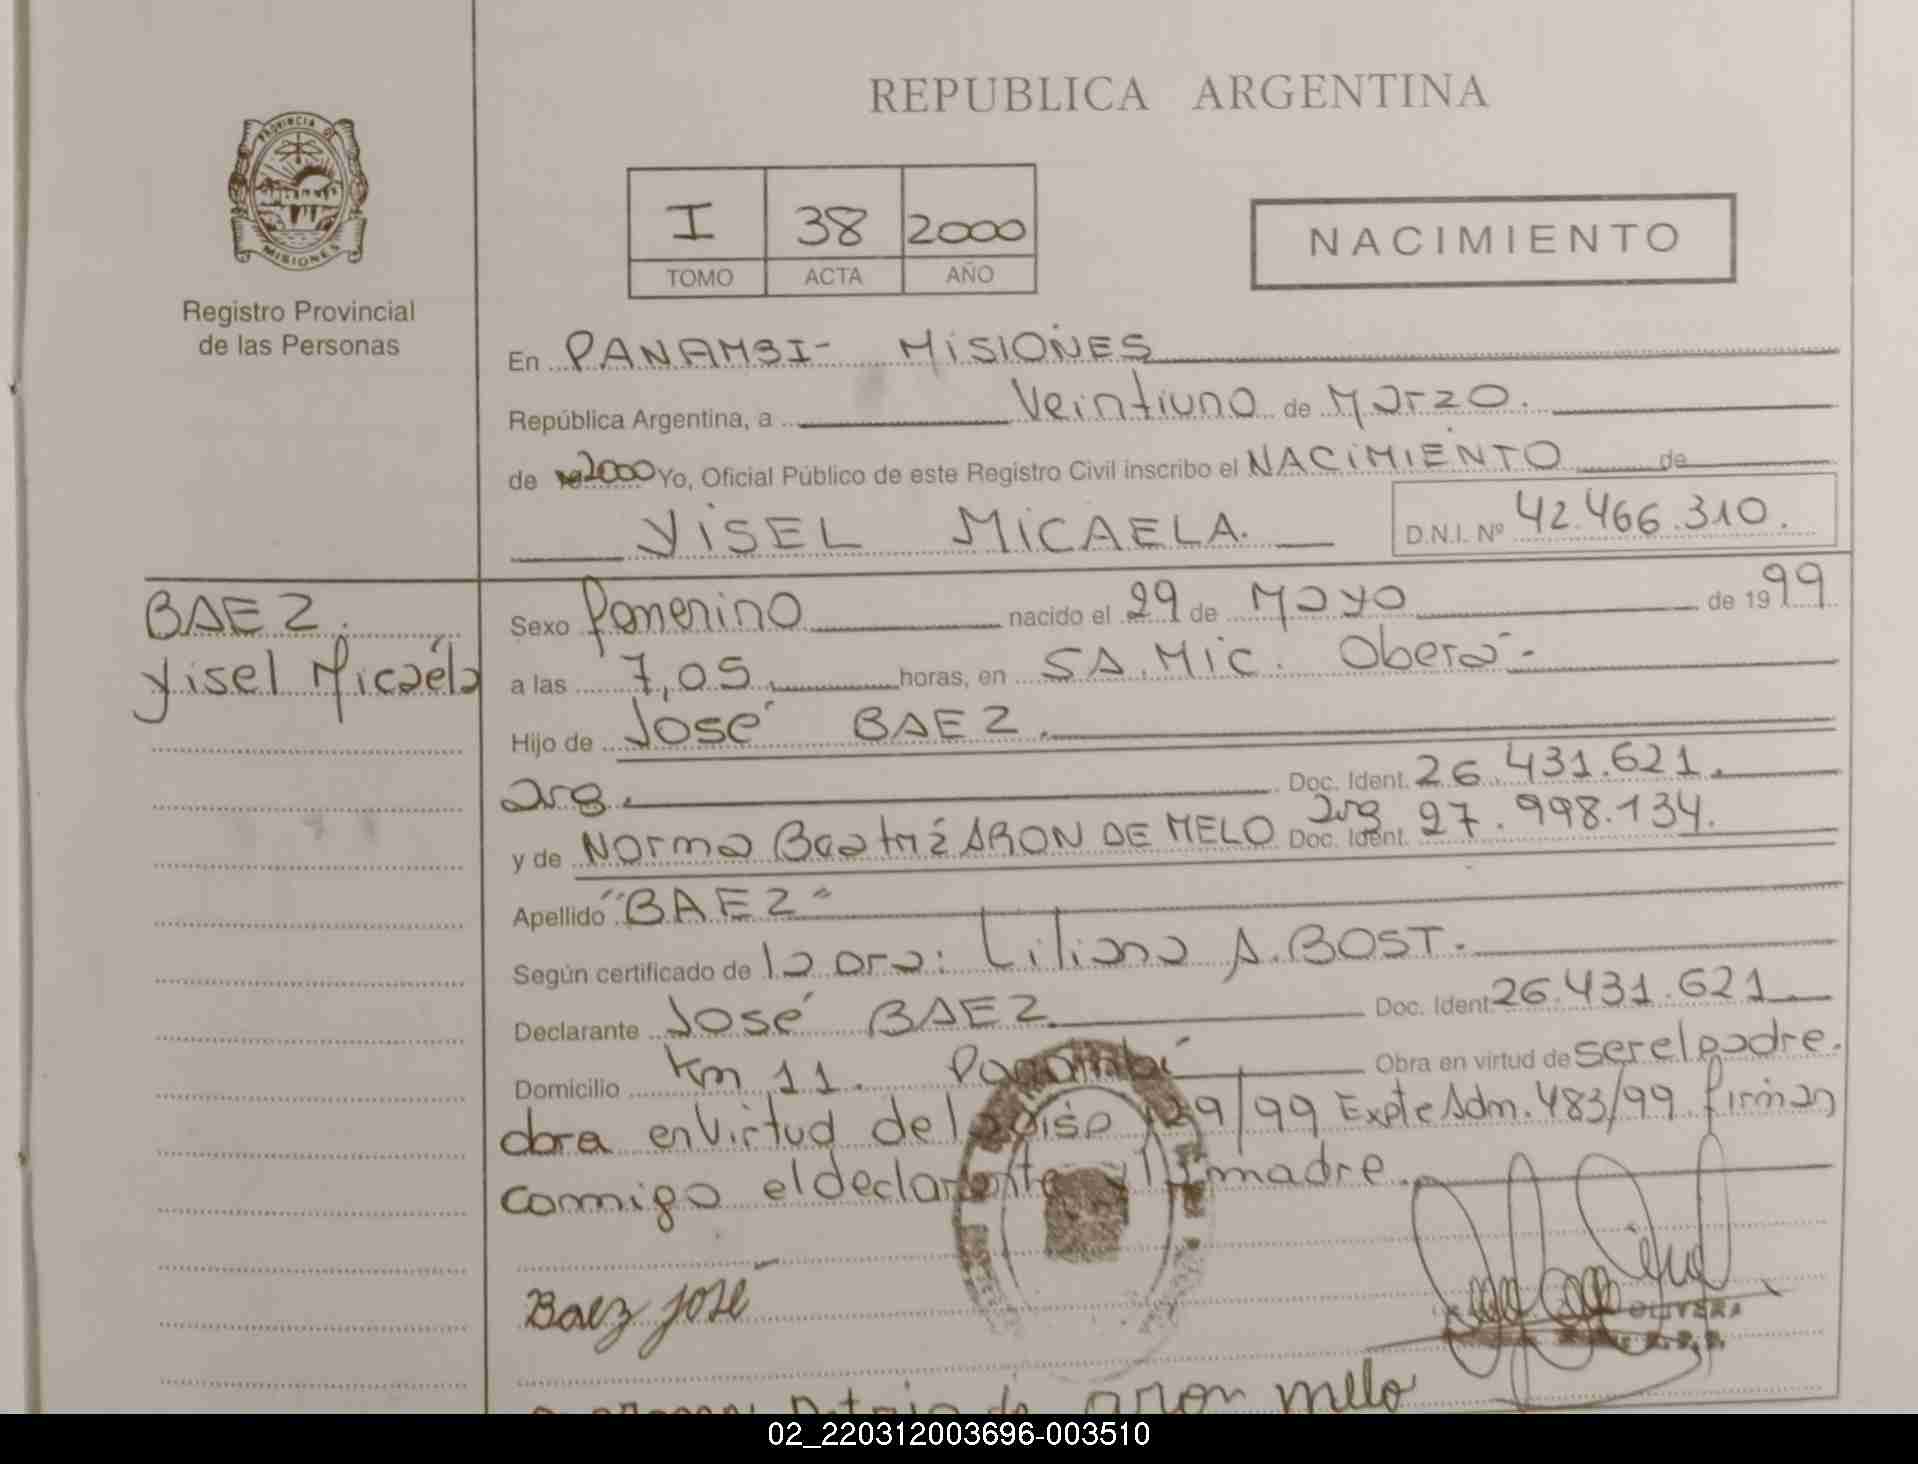 REPUBLICA ARGENTINA
PROVINCIA D
MISIONES
Registro Provincial
de las Personas
I 38 2000
TOMO ACTA AÑO
NACIMIENTO
En PANAMBI- MISIONES
República Argentina, a Veintiuno de Marzo.
de 2000 Yo, Oficial Público de este Registro Civil inscribo el NACIMIENTO de
YISEL MICAELA.
D.N.I. Nº 42.466.310.
BAEZ.
Yisel Micaela
Sexo femenino nacido el 29 de Mayo de 1999
a las 7,05 horas, en SA.MIC. Oberá-
Hijo de José BAEZ.
arg. Doc. Ident. 26.431.621.
y de Norma Beatriz ARON DE MELO Doc. Ident. arg 27.998.134.
Apellido "BAEZ"
Según certificado de la Dra: Liliana A. BOST.
Declarante José BAEZ Doc. Ident. 26.431.621.
Domicilio Km 11. Panambí Obra en virtud de ser el padre.
obra en Virtud del 139/99 Expte Adm. 483/99 firman
conmigo el declarante y la madre.
Baez José
OLIVERA
aron mello
02_220312003696-003510